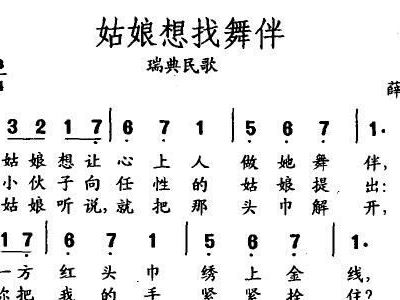 姑娘想找舞伴
瑞典民歌
薛
3 2 1 7 | 6 7 1 | 5 6 7 | 1·
姑娘想让心上人做她舞伴,
小伙子向任性的姑娘提出:
姑娘听说,就把那头巾解开,
1 7 | 6 7 1 | 5 6 7 | 1·
一方红头巾绣上金线,
你把我的手紧紧拴住?